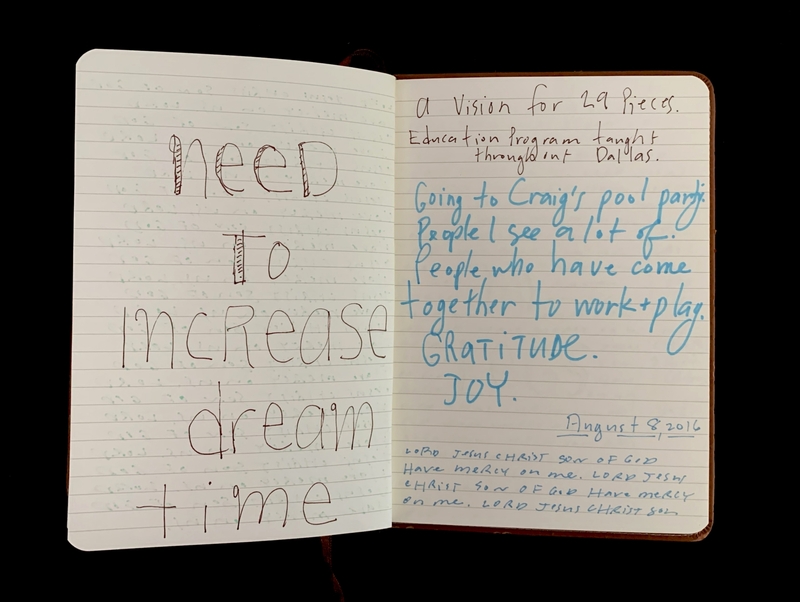 NEED
TO
INCREASE
dream
time
a Vision for 29 Pieces.
Education Program taught
throughout Dallas.
Going to Craig's pool party.
People I see a lot of.
People who have come
together to work + play.
GRATITUDE.
JOY.
August 8, 2016
LORD JESUS CHRIST SON OF GOD
HAVE MERCY ON ME. LORD JESUS
CHRIST SON OF GOD HAVE MERCY
ON ME. LORD JESUS CHRIST SON